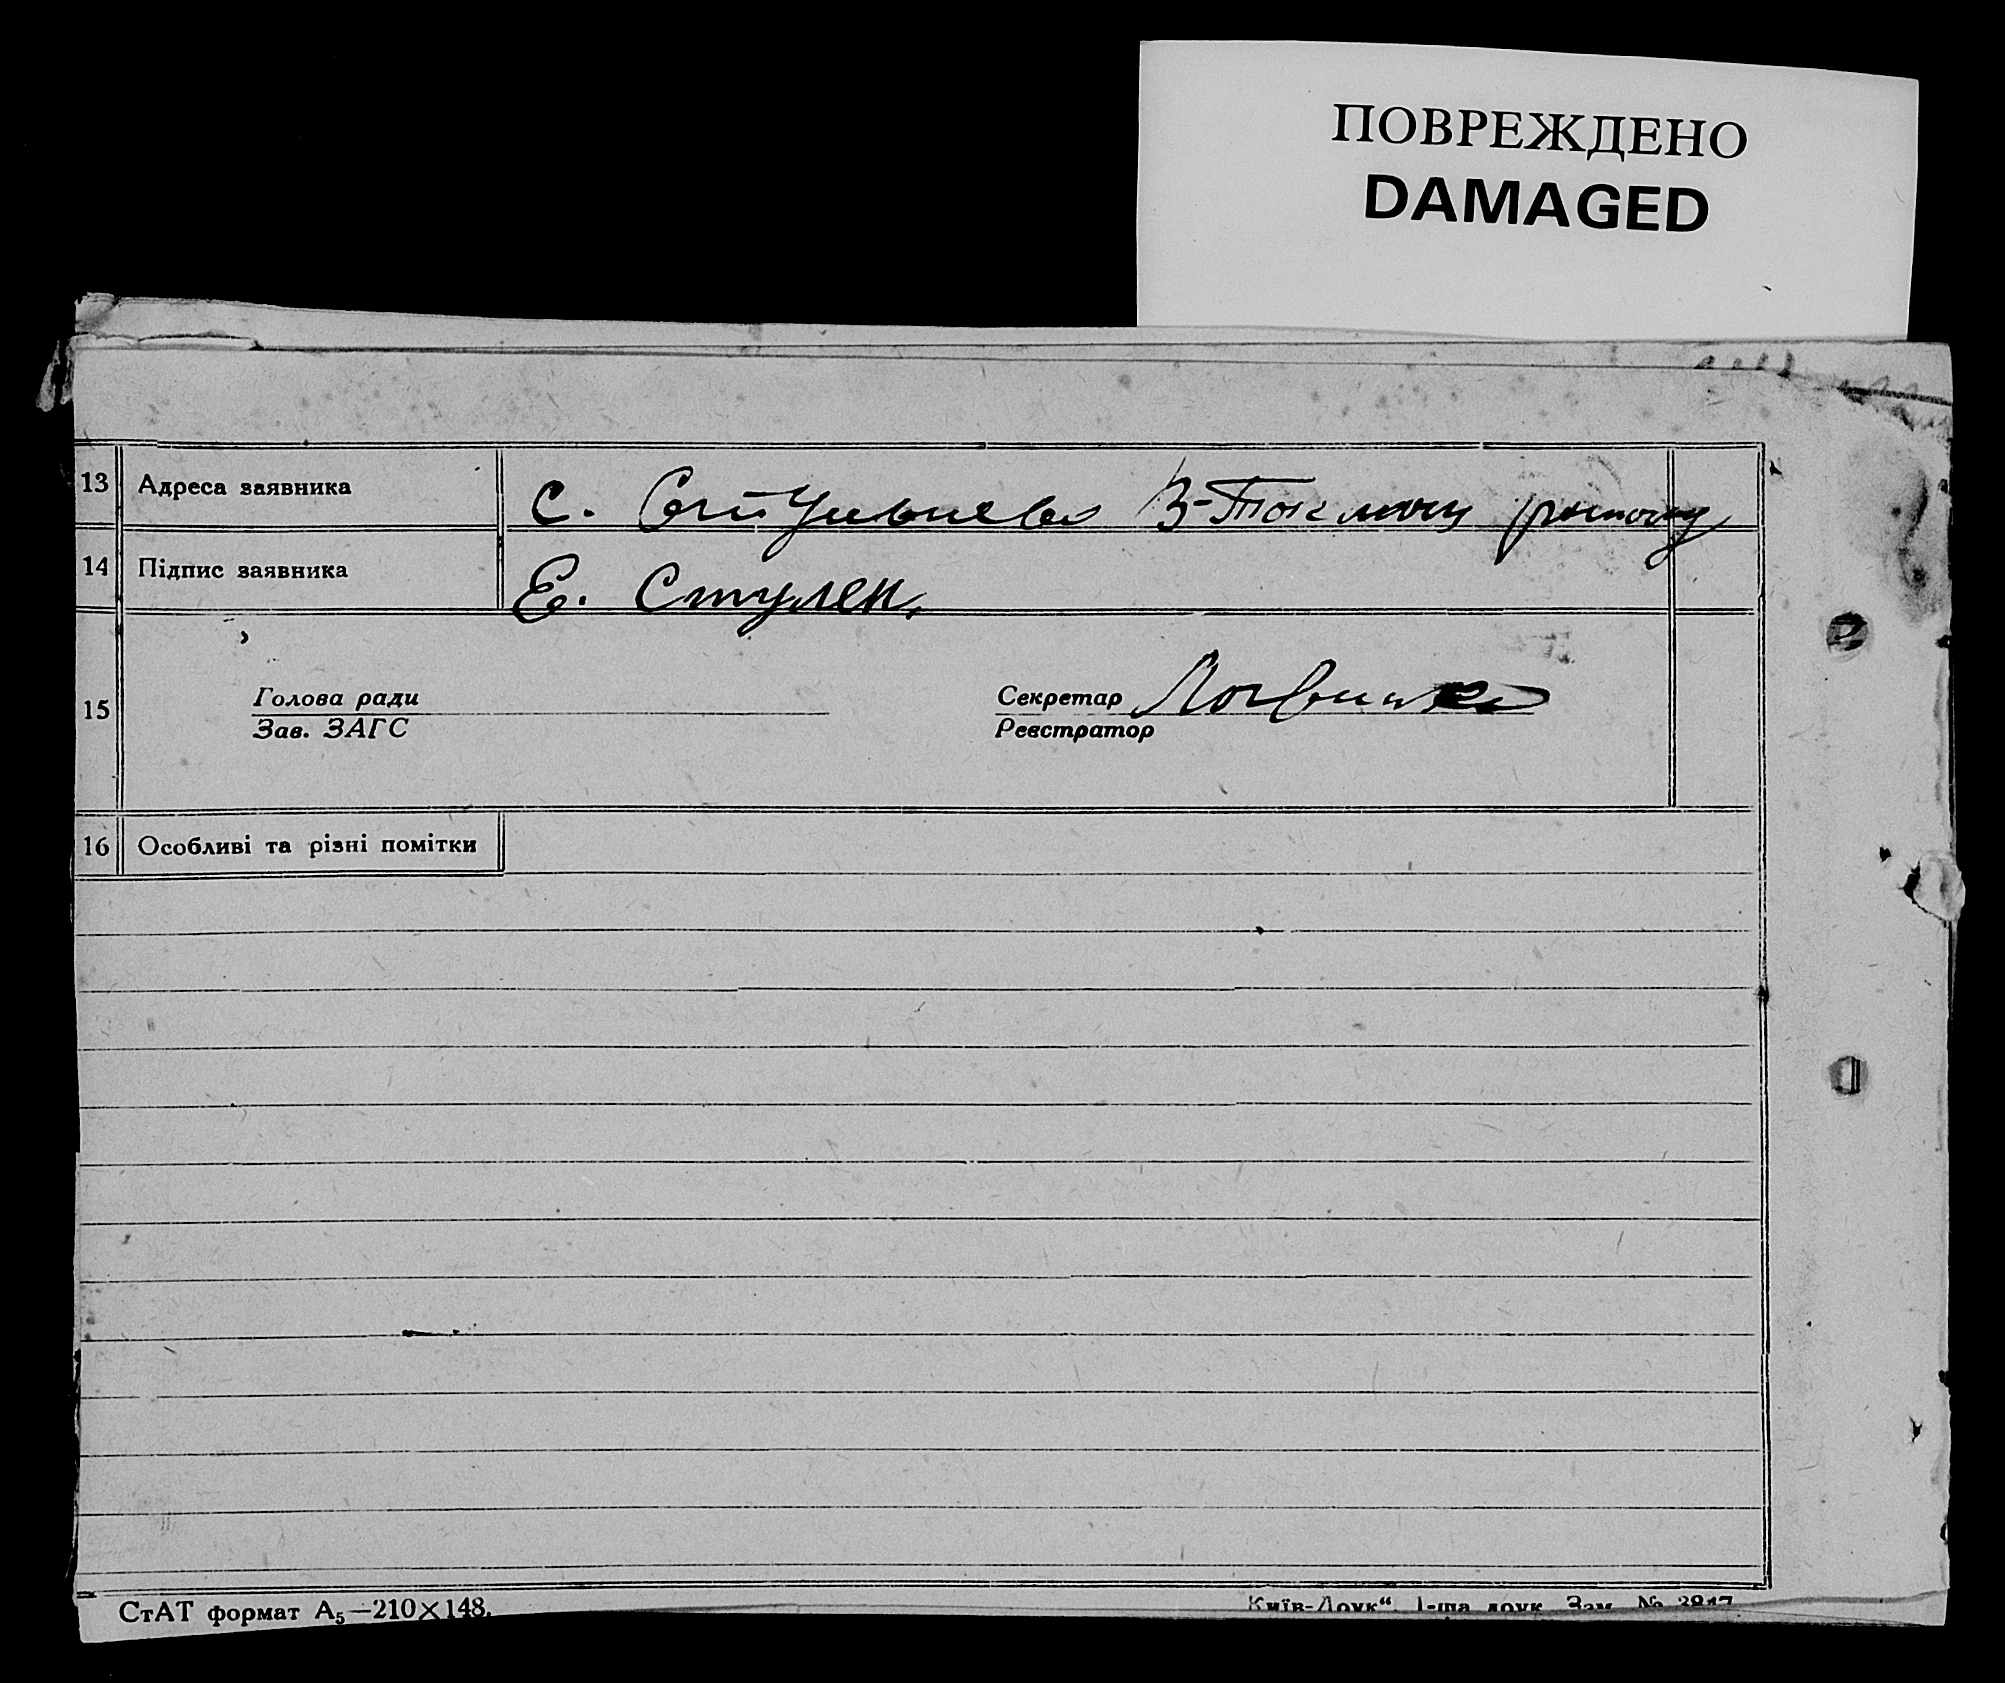 ПОВРЕЖДЕНО
DAMAGED
13 Адреса заявника с. В-Токмачу району
14 Підпис заявника Е. Стулен.
15 Голова ради Секретар
Зав. ЗАГС Реєстратор
16 Особливі та різні помітки
СтАТ формат А5—210×148. Київ-Друк“. 1-ша друк. Зам. №